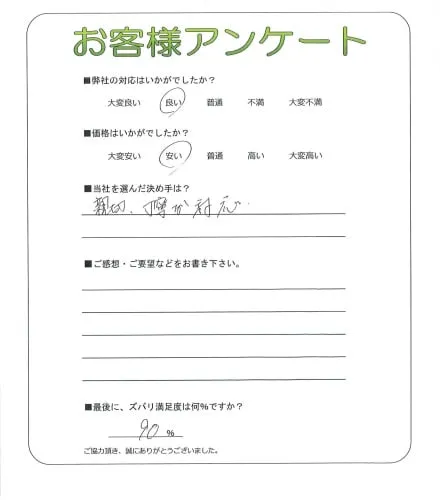 お客様アンケート
■弊社の対応はいかがでしたか？
大変良い 良い 普通 不満 大変不満
■価格はいかがでしたか？
大変安い 安い 普通 高い 大変高い
■当社を選んだ決め手は？
親切、丁寧な対応
■ご感想・ご要望などをお書き下さい。
■最後に、ズバリ満足度は何％ですか？
90 %
ご協力頂き、誠にありがとうございました。